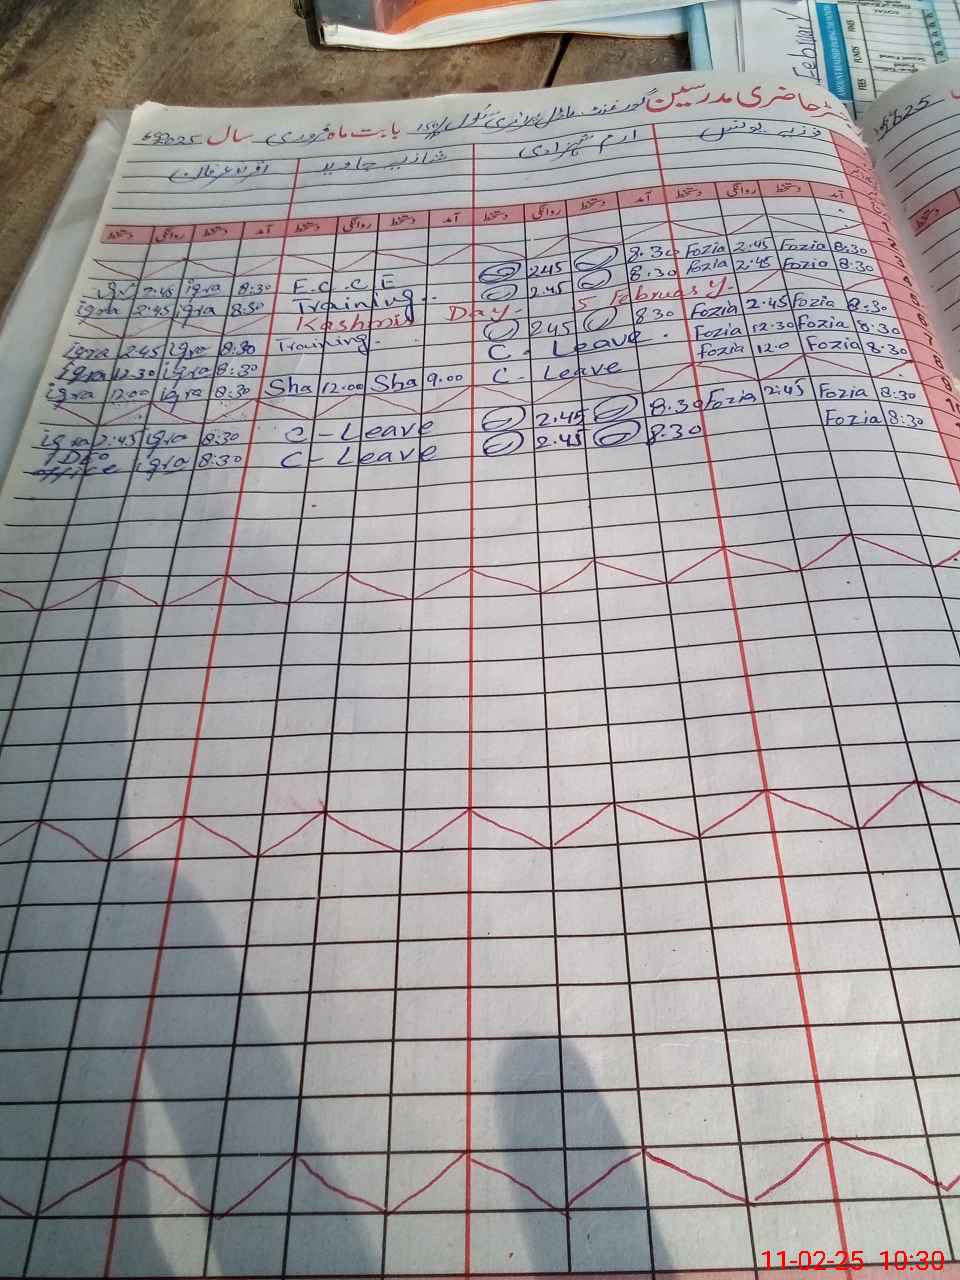 February
FEES FUNDS FINE
حاضری مدرسین گورنمنٹ ماڈل پرائمری سکول بابت ماہ فروری سال 2025
2025
فوزیہ یونس ارم شہزادی شازیہ جاوید اقراء عرفان
آمد دستخط روانگی دستخط آمد دستخط روانگی دستخط آمد دستخط روانگی دستخط آمد دستخط روانگی دستخط
1
2
3 2:45 iqra 8:30 E.C.C.E 2.45 8.30 Fozia 2.45 Fozia 8:30
4 iqra 2:45 iqra 8:30 Training 2.45 8.30 Fozia 2:45 Fozia 8:30
5 Kashmir Day 5 February
6 iqra 2:45 iqra 8:30 Training. 245 8.30 Fozia 2.45 Fozia 8:30
7 iqra 12:30 iqra 8:30 C. Leave. Fozia 12.30 Fozia 8:30
8 iqra 12:00 iqra 8:30 Sha 12.00 Sha 9.00 C- Leave Fozia 12.0 Fozia 8.30
9
10 iqra 2:45 iqra 8:30 C-Leave 2.45 8.30 Fozia 2:45 Fozia 8:30
office iqra 8:30 C-Leave 2.45 8.30 Fozia 8:30
11-02-25 10:30